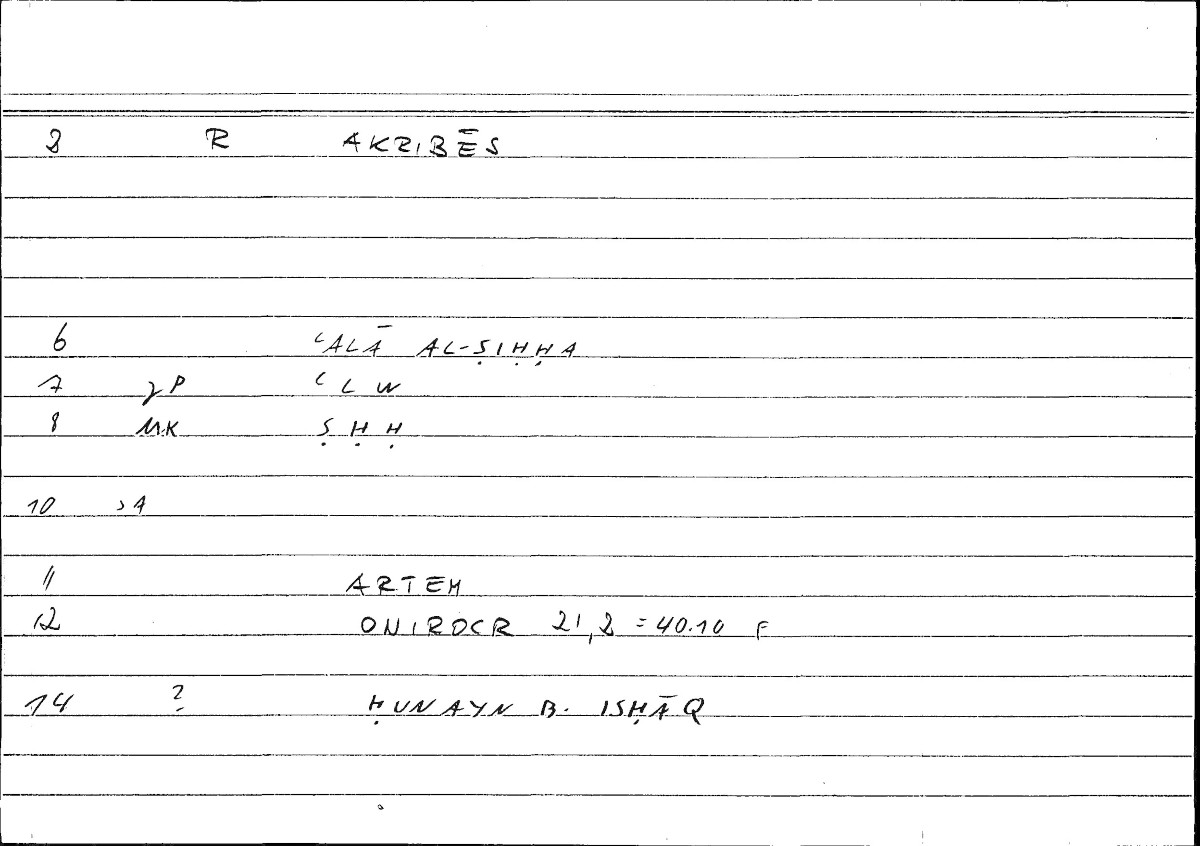 2 R AKRIBĒS
6 ʿALĀ AL-ṢIḤḤA
7 γP ʿLW
8 MK ṢḤḤ
10 ɔA
11 ARTEM
12 ONIROCR 21,2 = 40.10 F
14 ? ḤUNAYN B. ISḤĀQ